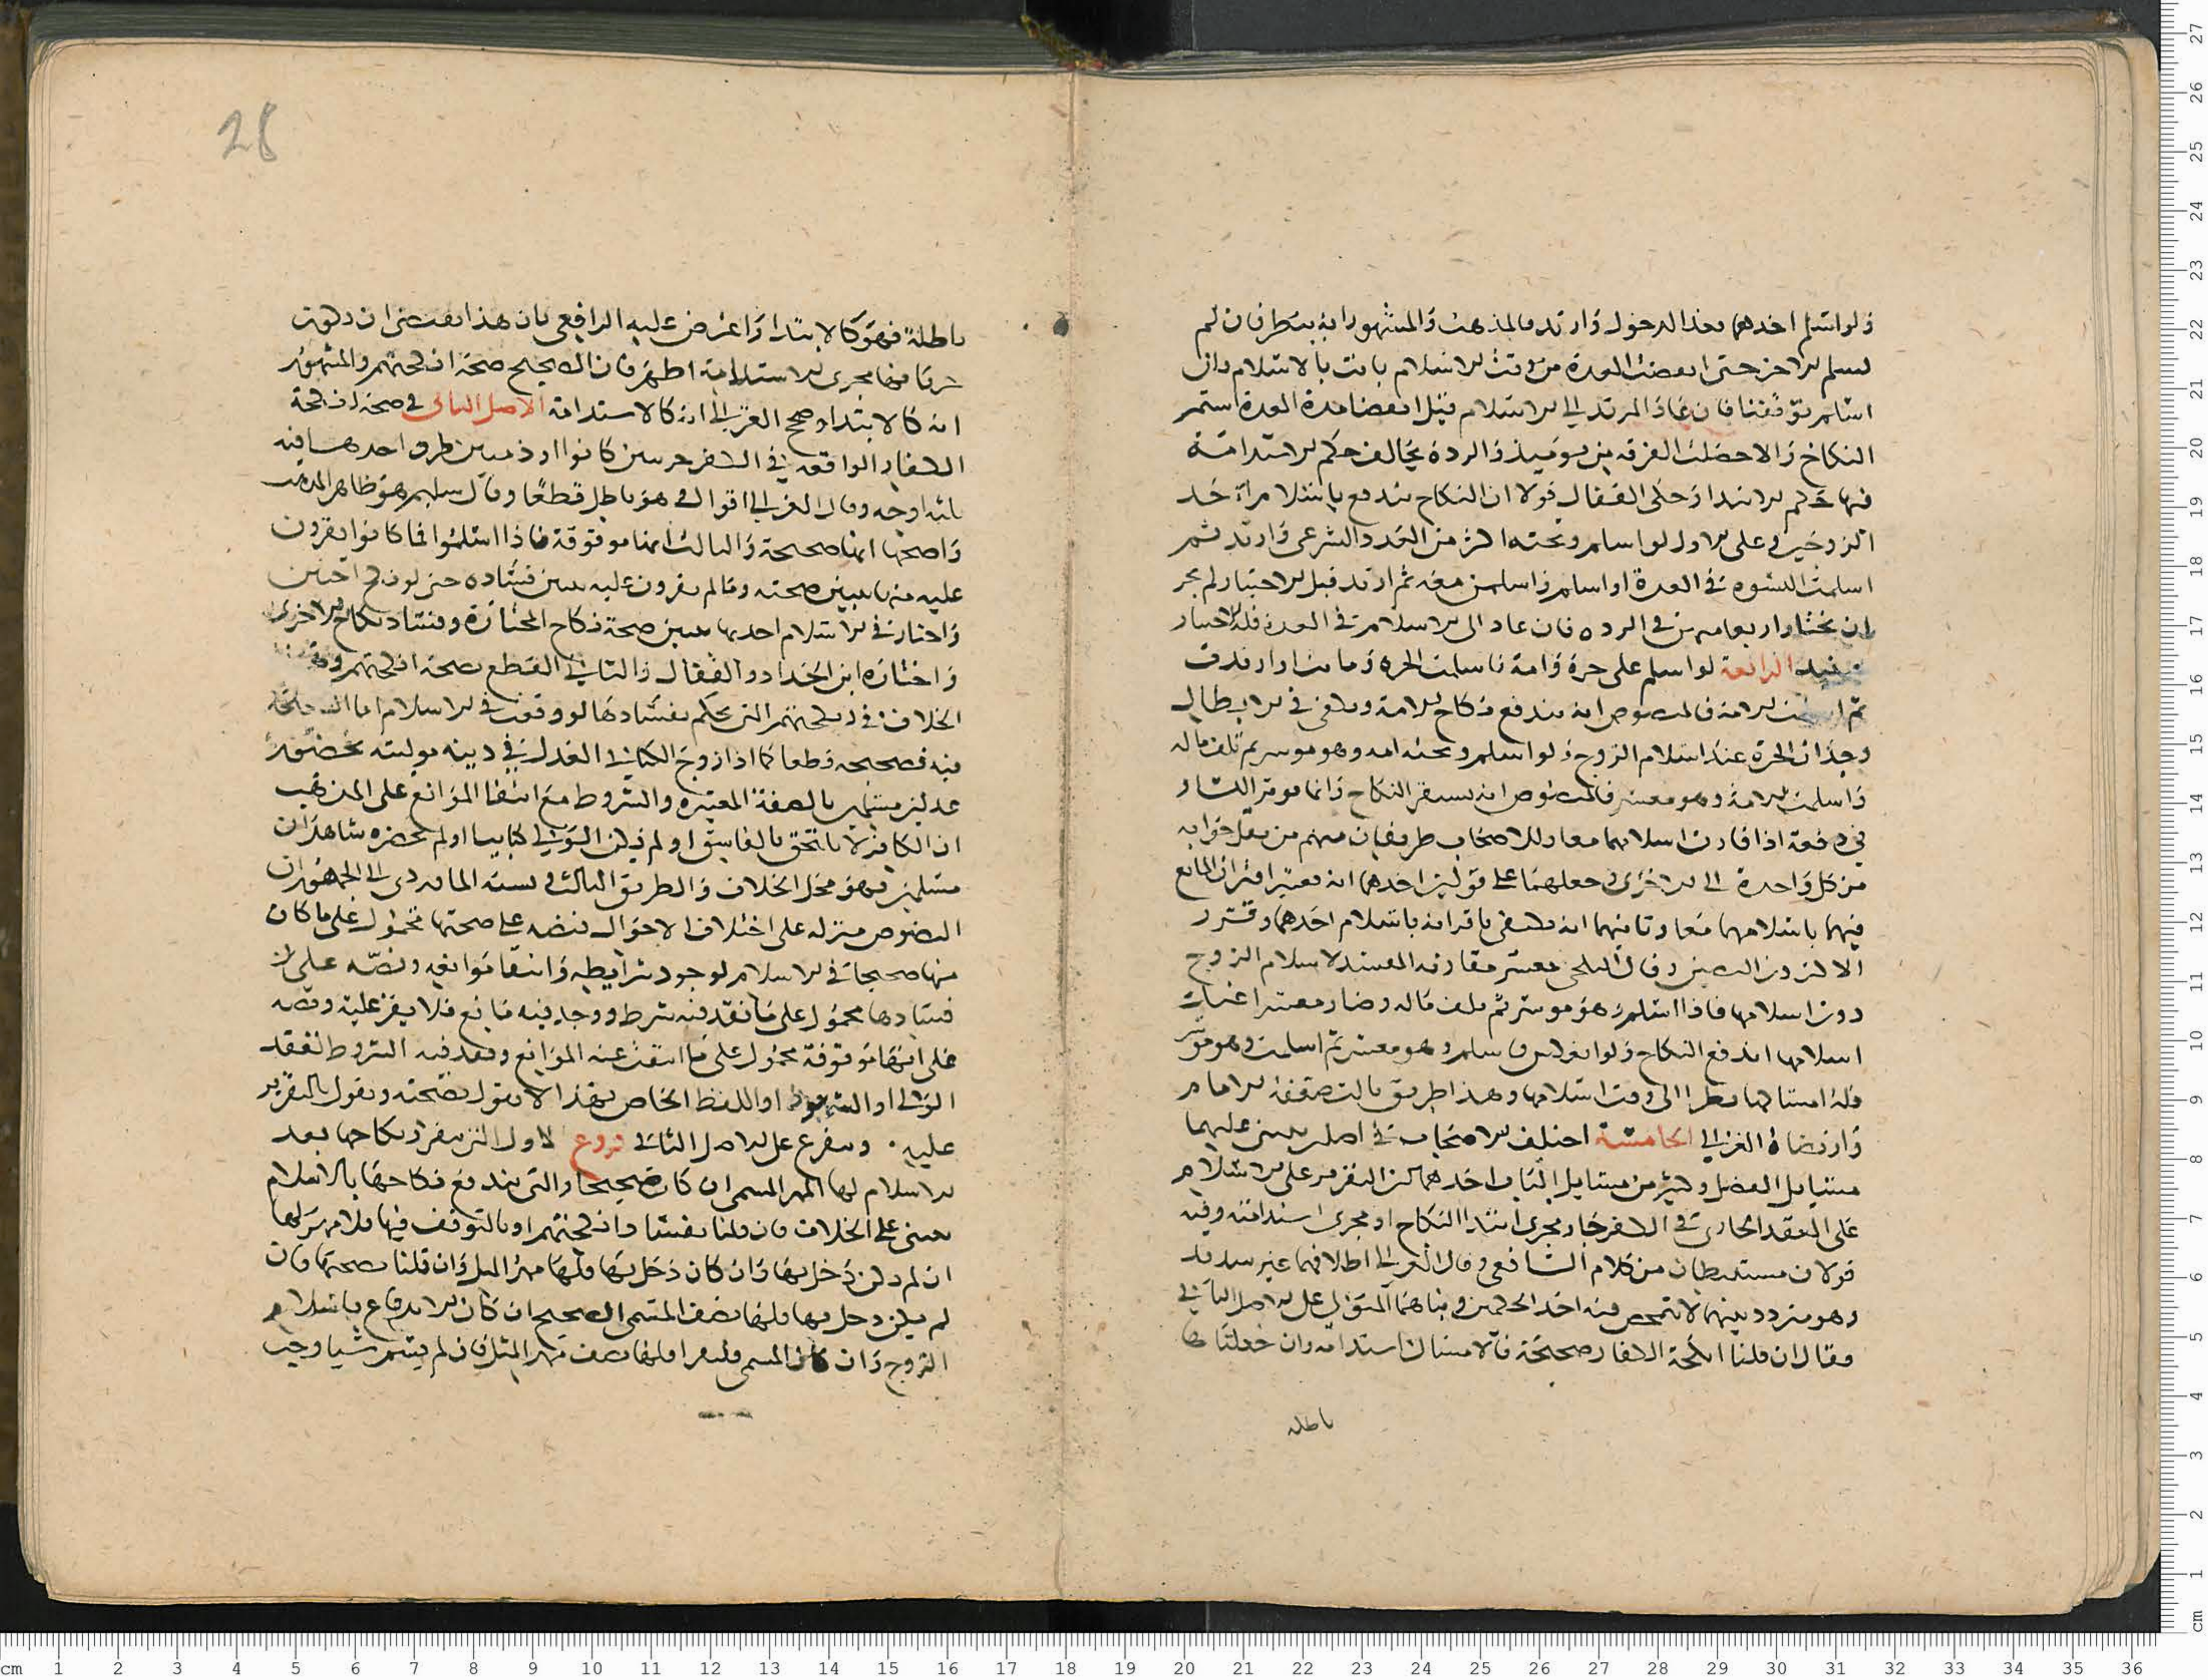 ولو اسلم احدهما بعد الدخول وارتد فالمذهب والمشهور انه ينتظر فان لم
يسلم الاخر حتى انقضت العدة من وقت الاسلام بانت بالاسلام وان
اسلم توقفنا فان عاد المرتد الى الاسلام قبل انقضا مدة العدة استمر
النكاح والا حصلت الفرقه من يوميذ والردة يخالف حكم الاستدامة
فيها حكم الابتدا وحكى القفال قولا ان النكاح يندفع باسلام احد
الزوجين وعلى الاول لو اسلم وتحته اكثر من العدد الشرعي وارتد ثم
اسلمت النسوه في العدة او اسلم واسلمن معه ثم ارتد قبل الاختيار لم يجز
ان يختار اربعا منهن في الرده فان عاد الى الاسلام في العدة فله الاختيار
حينيد الرابعة لو اسلم على حرة وامة فاسلمت الحره وماتت او ارتدت
ثم اسلمت الامة فالمنصوص انه يندفع نكاح الامة ويكفي في الابطال
وجدان الحرة عند اسلام الزوج ولو اسلم وتحته امه وهو موسر ثم تلف ماله
واسلمت الامة وهو معسر فالمنصوص انه يستقر النكاح وانما يوثر اليسار
في دفعه اذا قارن اسلامهما معا وللاصحاب طريقان منهم من نقل جوابه
من كل واحدة الى الاخرى وجعلهما على قولين احدهما انه يعتبر اقتران المانع
فيهما باسلامهما معا وثانيهما انه يكتفى باقترانه باسلام احدهما وقرر
الاكثرون النصين وقال البلخي يعتبر مقارنه المفسد لاسلام الزوج
دون اسلامها فاذا اسلم وهو موسر ثم تلف ماله وصار معسرا عند
اسلامها اندفع النكاح ولو انعكس فاسلم وهو معسر ثم اسلمت وهو موسر
فله امساكها نظرا الى وقت اسلامها وهذا طريق بالت ضعفه الامام
وارتضاه الغزالي الخامسة اختلف الاصحاب في اصلين يبتنى عليهما
مسايل الفصل وكثير من مسايل الباب احدهما ان التقرير على الاسلام
على العقد الجاري في الكفر جار مجرى ابتدا النكاح او مجرى استدامته وفيه
قولان مستنبطان من كلام الشافعي وقال الغزالي اطلاقهما غير سديد
وهو متردد بينهما لا يتمحض فيه احد الحكمين وبناهما المتولي على الاصل الثاني
فقال ان قلنا انكحة الكفار صحيحة فالامساك استدامه وان جعلناها
باطله
28
باطلة فهو كالابتدا واعترض عليه الرافعي بان هذا يقتضي ان يكون
جريانها مجرى الاستدامة اظهر فان الصحيح صحة انكحتهم والمشهور
انه كالابتدا وصحح الغزالي انه كالاستدامة الاصل الثاني في صحة انكحة
الكفار الواقعه في الكفر حربيين كانوا او ذميين طرق احدها فيه
ثلثه اوجه وقال الغزالي اقوال في هو باطل قطعا وقال سليم هو ظاهر المذهب
واصحها انها صحيحة والثالث انها موقوقة فاذا اسلموا فما كانوا يقرون
عليه منها يتبين صحته وما لم يقرون عليه يتبين فساده حتى لو نكح اختين
واختار في الاسلام احديهما يتبين صحة نكاح المختارة وفساد نكاح الاخرى
واختاره ابن الحداد والقفال والثاني القطع بصحة انكحتهم
الخلاف في انكحتهم التي يحكم بفسادها لو وقعت في الاسلام اما
فيه فصحيحه قطعا كما اذا زوج الكتابي العدل في دينه موليته بحضور
عدلين مسلمين بالصفة المعتبره والشروط مع انتفا الموانع على المذهب
ان الكافر لا يلتحق بالفاسق او لم يكن الولي كتابيا او لم يحضره شاهدان
مسلمين فهو محل الخلاف والطريق الثالث ونسبه الماوردي الى الجمهور ان
النصوص منزله على اختلاف الاحوال فنصه على صحتها محمول على ما كان
منها صحيحا في الاسلام لوجود شرايطه وانتفا موانعه ونصه على
فسادها محمول على ما فقد فيه شرط ووجد فيه مانع فلا يقر عليه ونصه
على انها موقوفة محمول على ما انتفت عنه الموانع وفقد فيه الشروط لفقد
الولي او الشهود او اللفظ الخاص فهذا لا نقول بصحته ونقول بالتقرير
عليه ويتفرع على الاصل الثاني فروع الاول التي يتقرر نكاحها بعد
الاسلام لها المهر المسمى ان كان صحيحا والتي يندفع نكاحها بالاسلام
يبنى على الخلاف فان قلنا بفساد انكحتهم او بالتوقف فيها فلا مهر لها
ان لم يكن دخل بها وان كان دخل بها فلها مهر المثل وان قلنا بصحتها فان
لم يكن دخل بها فلها نصف المسمى الصحيح ان كان الاندفاع باسلام
الزوج وان كان المسمى فلها نصف مهر المثل فان لم يسم شيا وجب